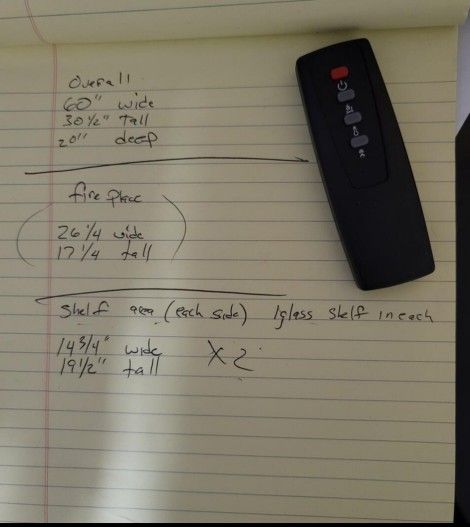 Overall
60" wide
30 1/2" tall
20" deep
fire place
26 1/4 wide
17 1/4 tall
Shelf area (each side) 1 glass shelf in each
14 3/4" wide X2
19 1/2" tall